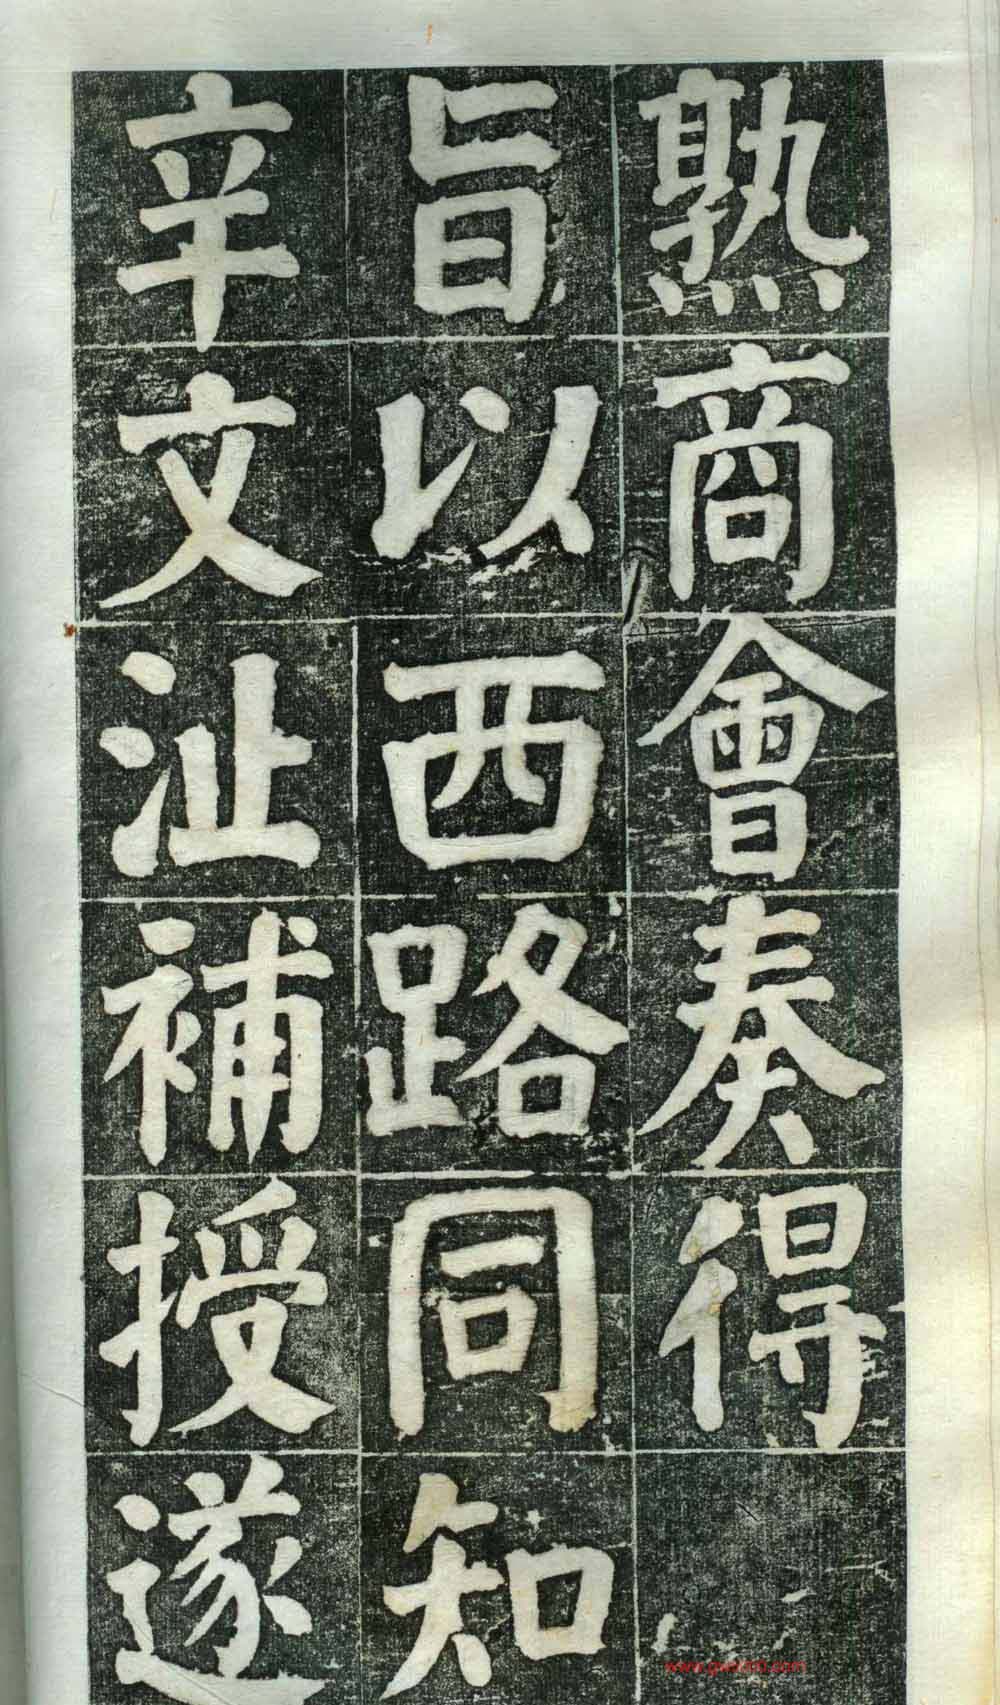 熟商會奏得
旨以西路同知
辛文沚補授遂
www.gwz00.com